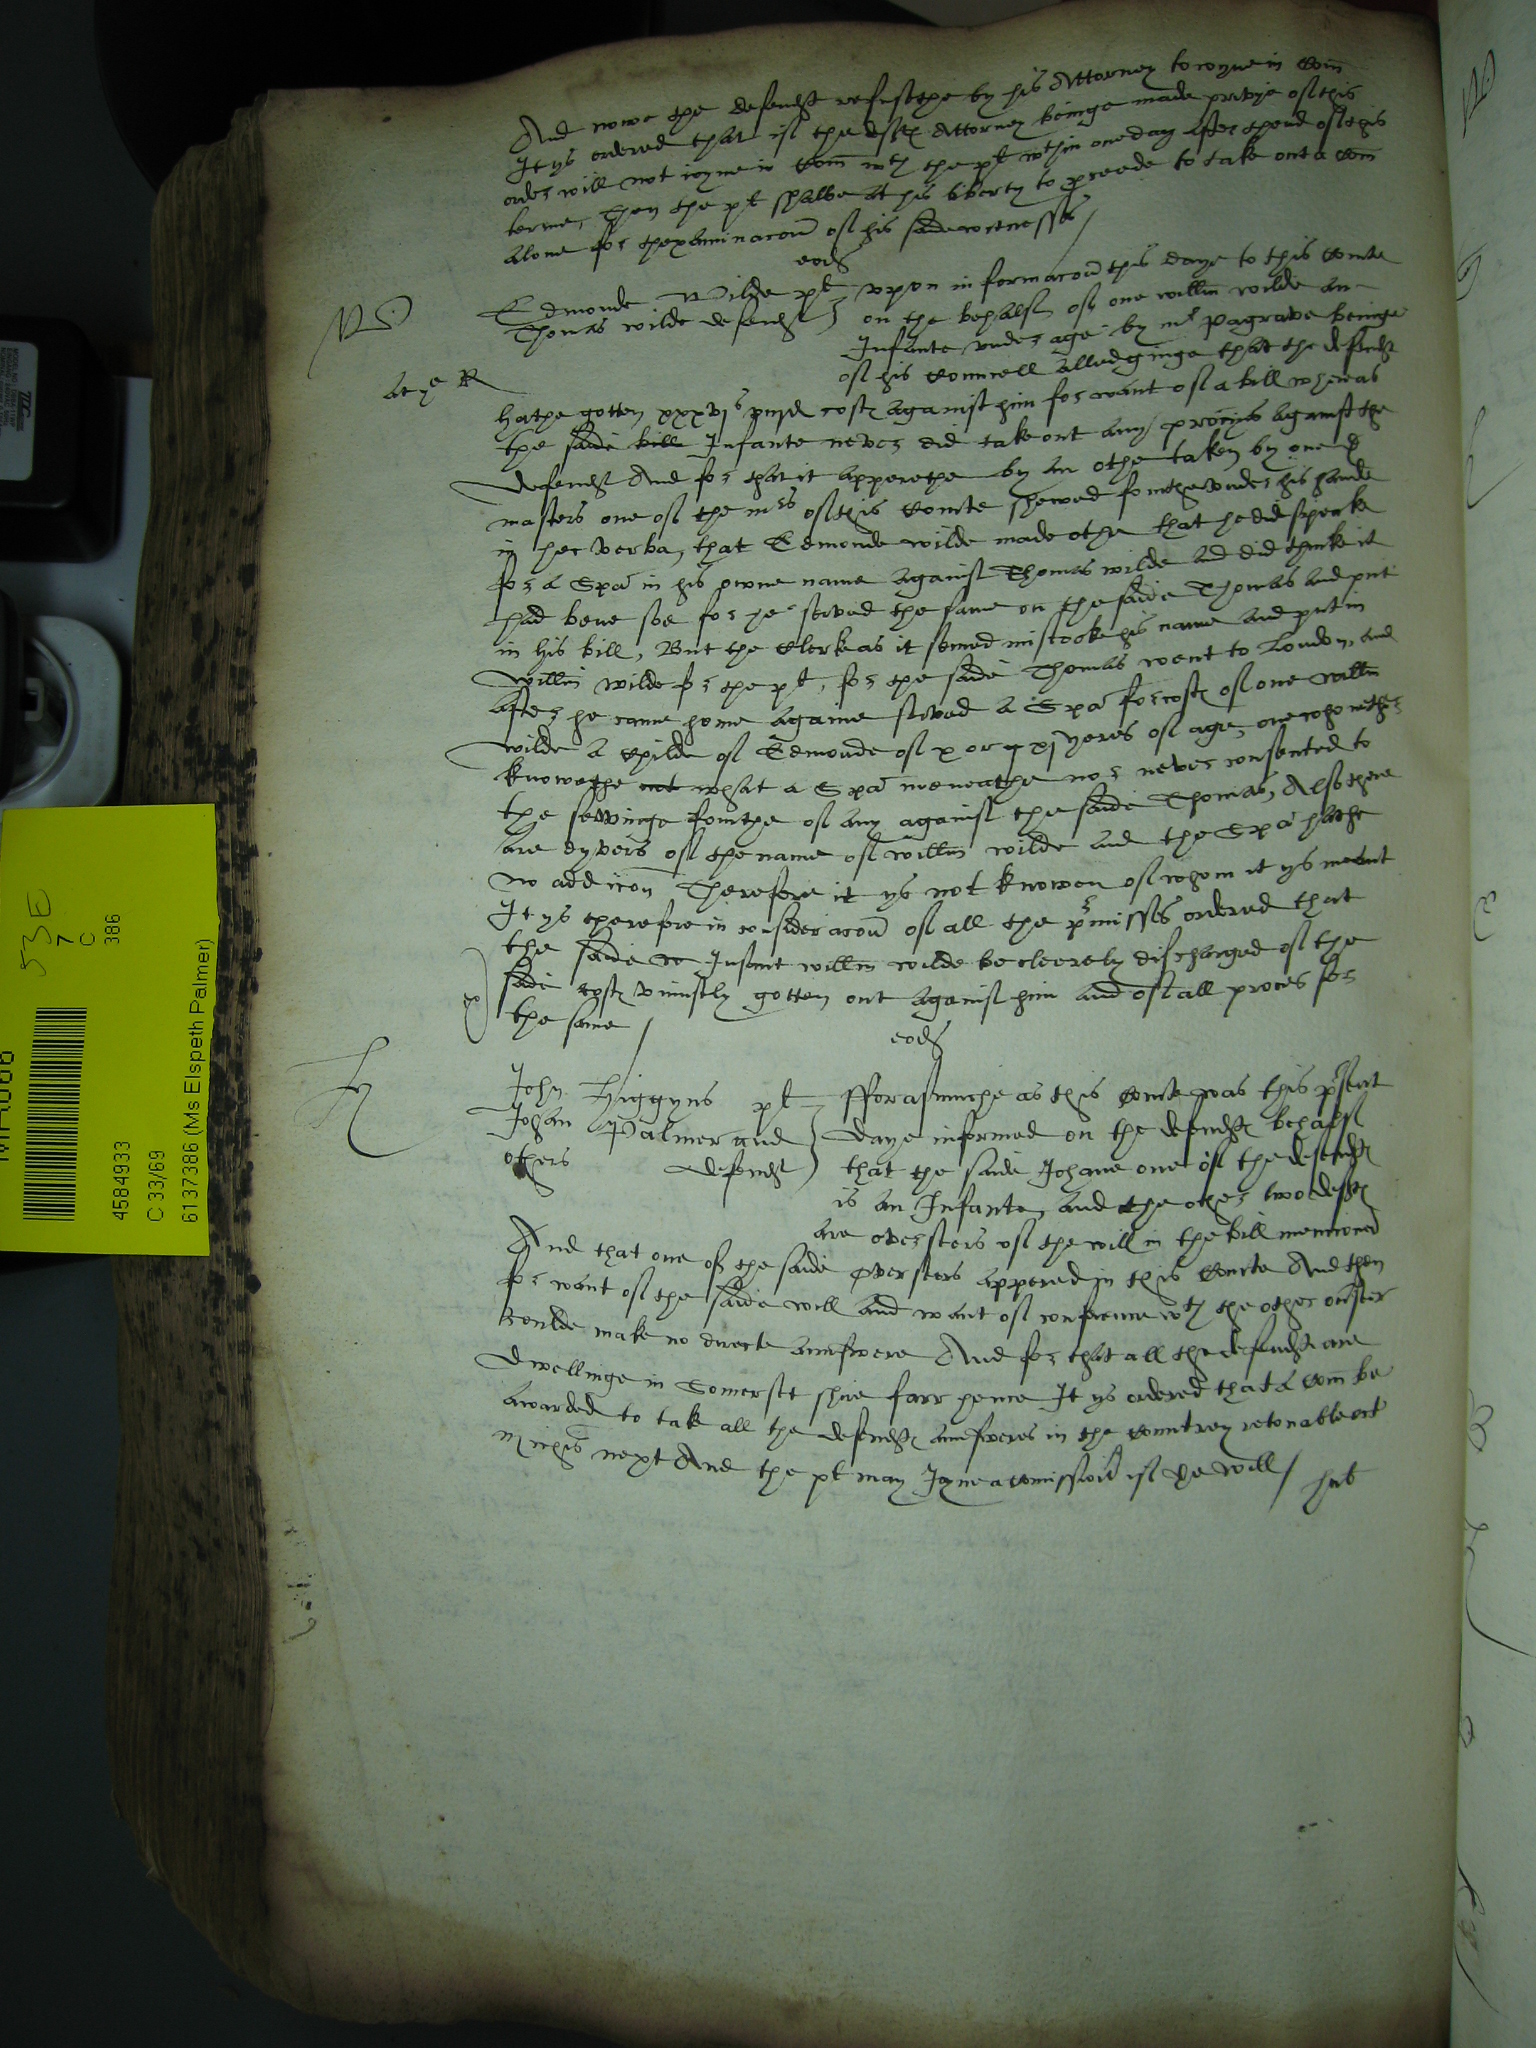 And nowe the defendt refusethe by his Attorney to ioyne in Com
It ys ordered that if the deft Attorney beinge made privye of this
order will not ioyne in Com wth the plt wthin one day after thend of this
terme, Then the plt shalbe at his liberty to proceede to take out a Com
alone for thexaminacon of his saide wittnesses /
eod
Edmonde Wilde plt
Thomas wilde defendt
vpon informacon this daye to this Courte
on the behalfe of one willm wilde an
Infante vnder age by mr Pagrave beinge
of his Councell alledginge that the defendt
hathe gotten xxxvjs viijd costs against him for want of a bill whereas
the saide bill Infante never did take out any proces against the
defendt And for that it apperethe by an othe taken by one
masters one of the mrs of this Courte shewed fourthe vnder his hande
in hec verba, that Edmonde wilde made othe that he did speake
for a Spa in his owne name against Thomas wilde and did thinke it
had bene soe for he served the same on the saide Thomas and put
in his bill, But the Clerke as it semed mistooke his name and put in
Willm wilde for the plt, for the saide Thomas went to London, and
after he came home againe served a Spa for costs of one Willm
wilde a Childe of Edmonde of x or xj yeres of age, one who nether
knowethe not what a Spa meneathe nor never consented to
the sewinge fourthe of any against the saide Thomas, Also there
are dyvers of the name of willm wilde and the Spa hathe
no addicon Therefore it ys not knowen of whom it ys meant
It ys therefore in consideracon of all the pmisses ordered that
the saide w Infant willm wilde be cleerely discharged of the
saide costs vniustly gotten out against him and of all proces for
the same /
eod
John Higgyns plt
Johan Palmer and
others defendt
fforasmuche as this Courte was this psent
daye informed on the defendts behalfe
that the saide Johane one of the defendts
is an Infante, and the other two defts
are oversiers of the will in the bill mencioned
And that one of the saide oversiers appered in this Courte And then
for want of the saide will and want of conference wth the other ovsier
Coulde make no directe aunswere And for that all the defendts are
dwellinge in Somersett shire farr hence It ys ordered that a Com be
awarded to take all the defendts aunsweres in the Countrey retornable oct
michis next And the plt may Joyne a comission if he will /
53E
7
C
386
4584933
C 33/69
6137386 (Ms Elspeth Palmer)